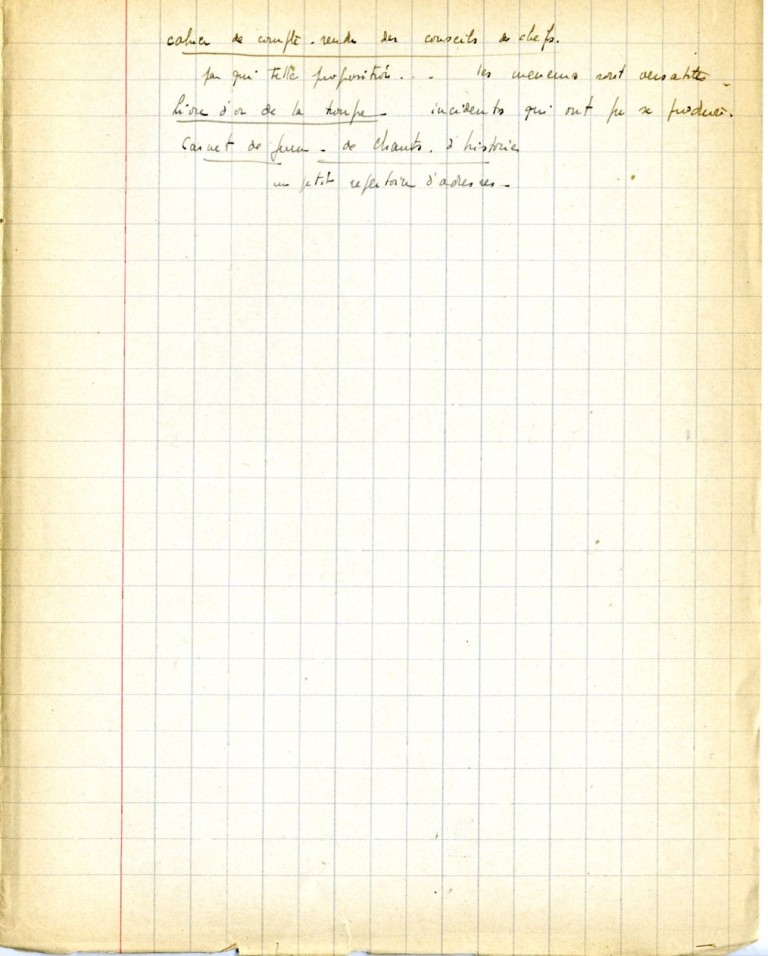 cahier de compte-rendu des conseils de chefs.
par qui telle proposition... les meneurs sont versatiles -
Livre d'or de la troupe incidents qui ont pu se produire.
Carnet de jeux - de chants - d'histoires
un petit repertoire d'adresses -